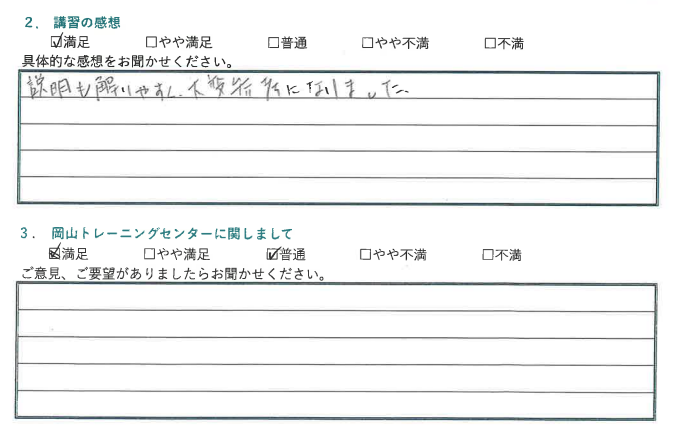 2. 講習の感想
☑満足 □やや満足 □普通 □やや不満 □不満
具体的な感想をお聞かせください。
説明も解りやすく、大変参考になりました。
3. 岡山トレーニングセンターに関しまして
☑満足 □やや満足 ☑普通 □やや不満 □不満
ご意見、ご要望がありましたらお聞かせください。